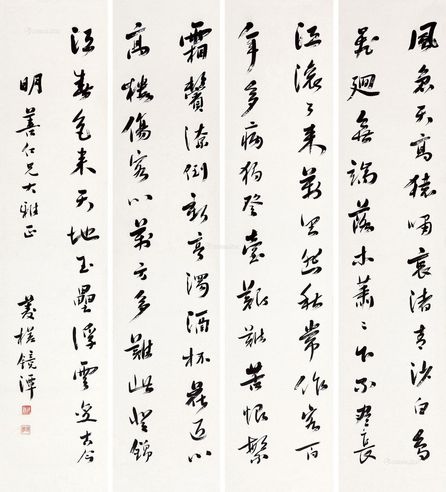 風急天高猿嘯哀渚青沙白鳥
飛廻無端落木蕭〻下不盡長
江滾〻來萬里悲秋常作客百
年多病獨登臺艱難苦恨繁
霜鬢潦倒新亭濁酒杯花近
高樓傷客心萬方多難此登錦
江春色來天地玉壘浮雲變古今
明善仁兄大雅正
菱槎鏡潭